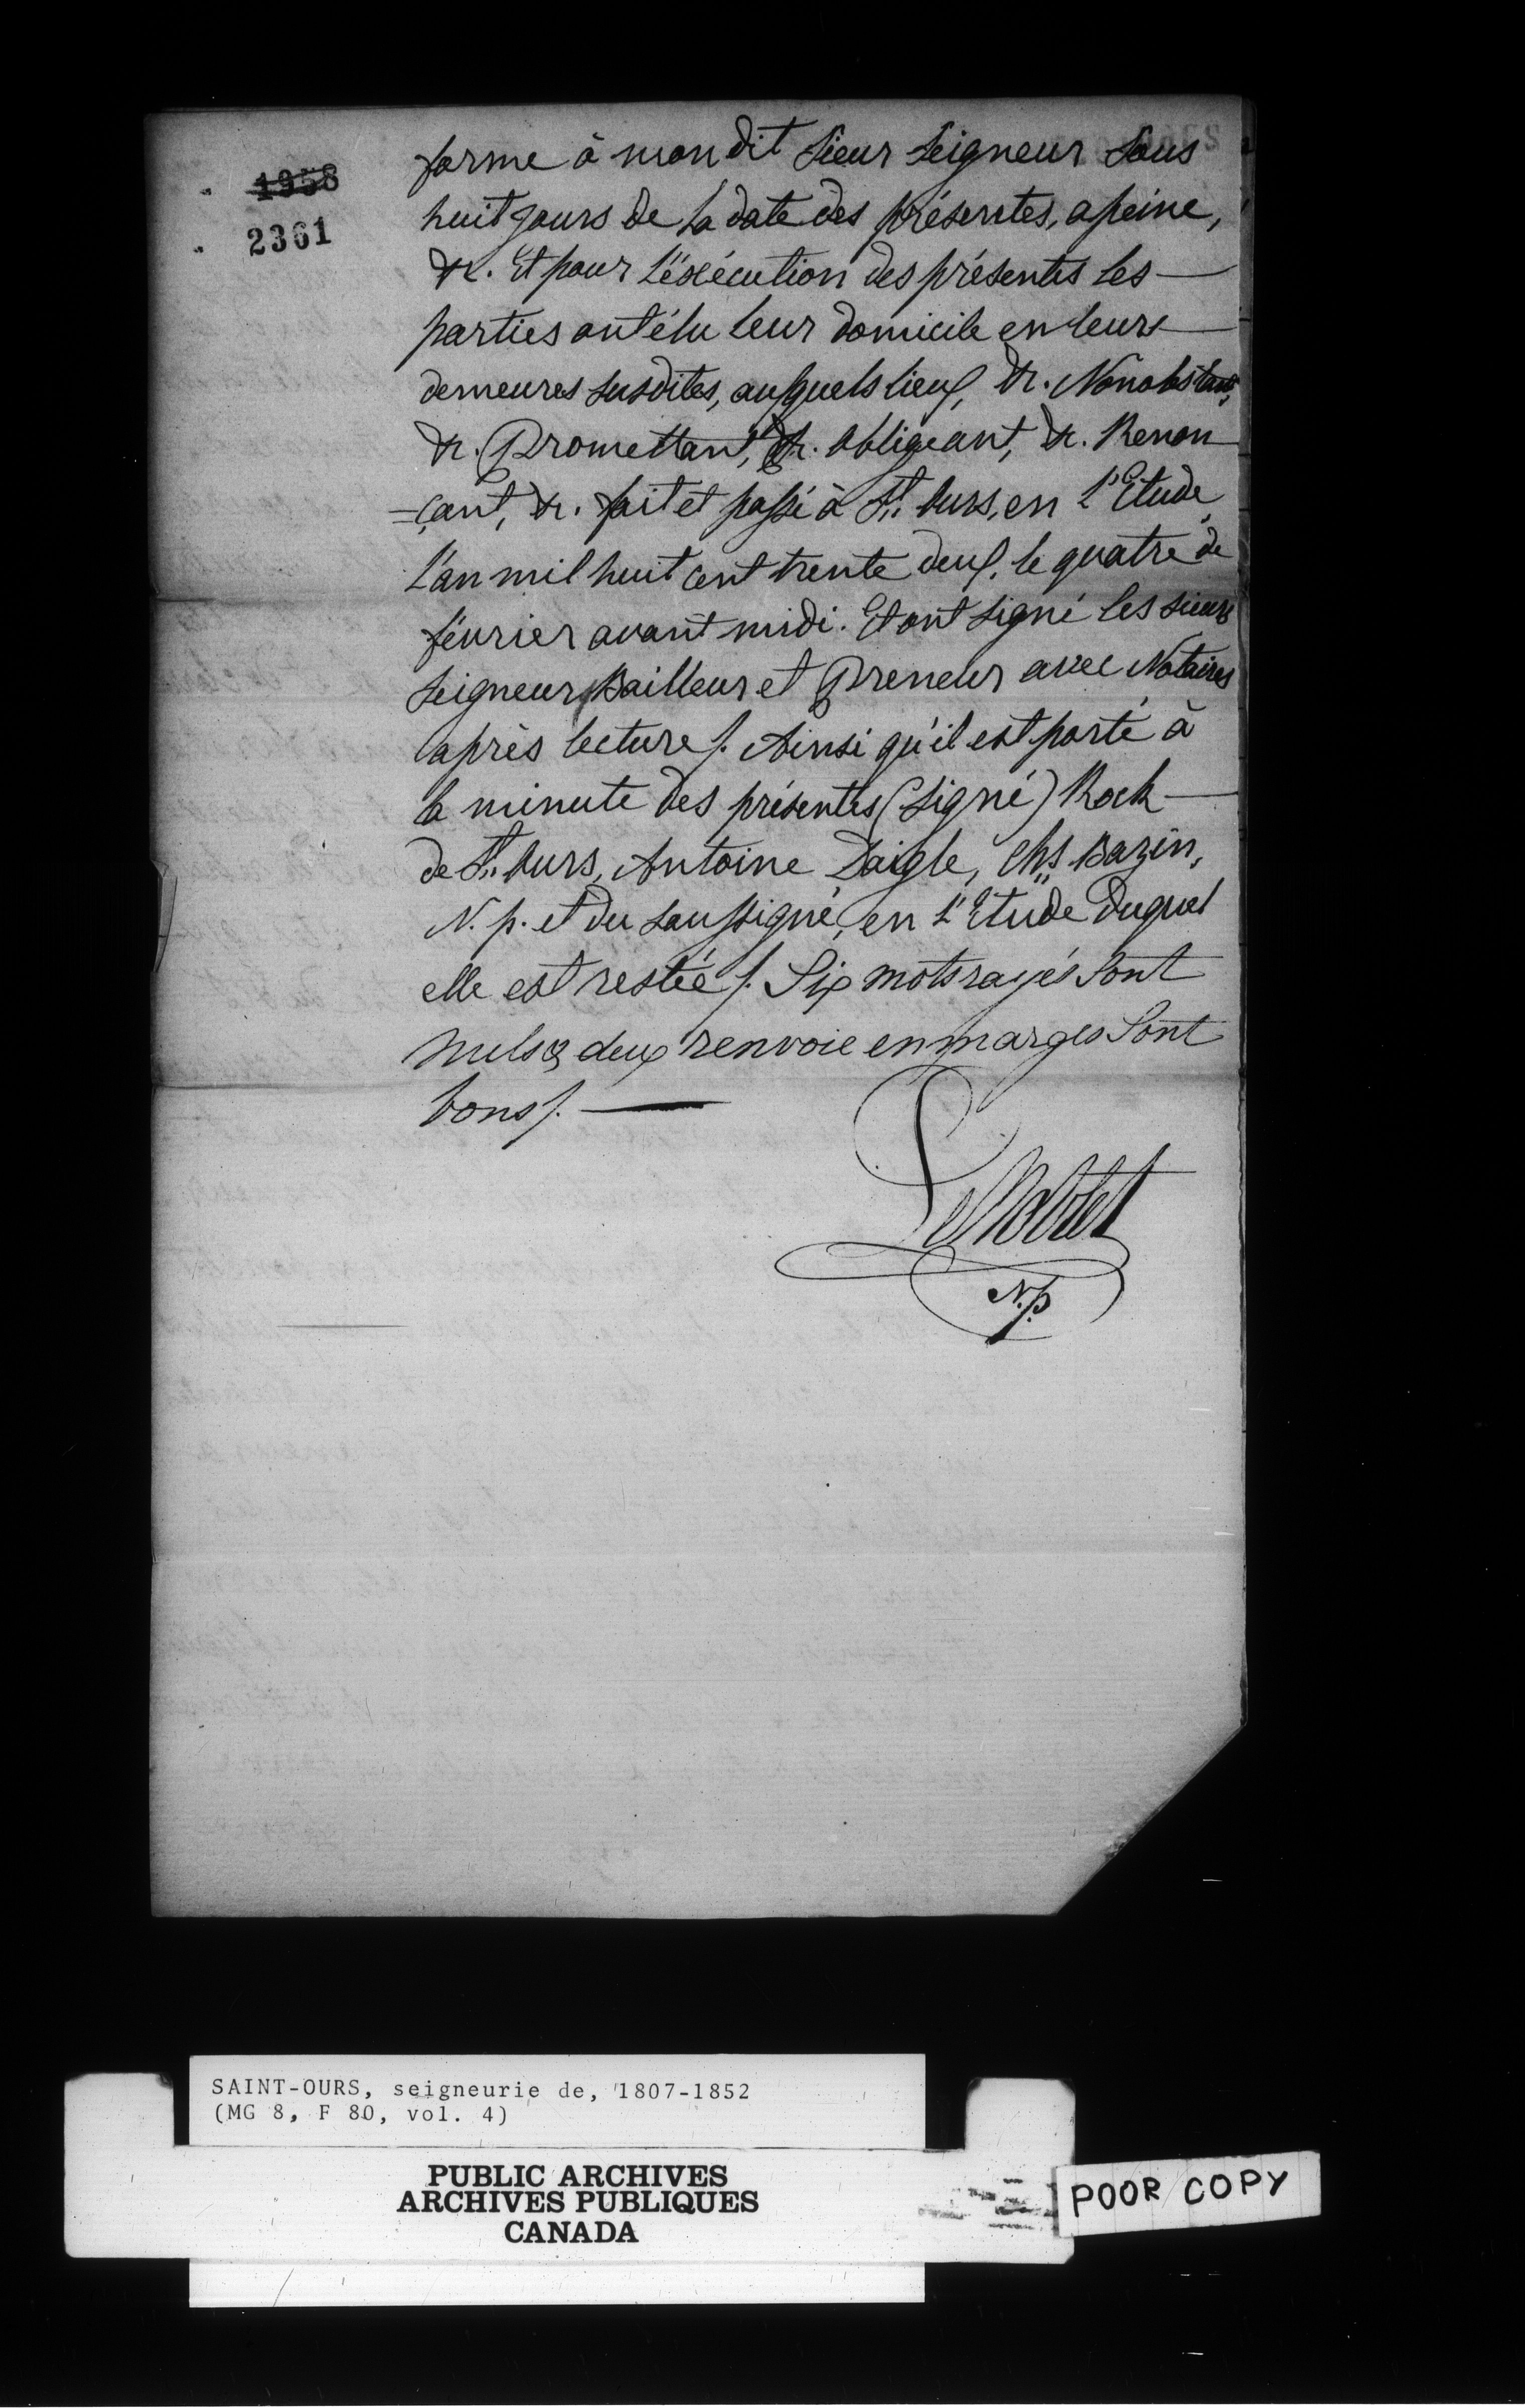 1958
2361
forme à mondit Sieur Seigneur Sous
huit jours de la date des présentes, a peine,
&c. Et pour L'éxécution des présentes les
parties ont élu leur domicile en leurs
demeures susdites, auxquels lieux, &c. Nonobstant,
&c. Promettant, &c. obligeant, &c. Renon
=çant, &c. fait et passé à St. Ours, en L'Etude,
L'an mil huit cent trente deux, le quatre de
février avant midi. Et ont signé les sieurs
Seigneur Bailleur et Preneur avec Notaires
après lecture /. Ainsi qu'il est porté à
la minute des présentes (Signé) Roch
de St. Ours, Antoine Daigle, Chs. Bazin,
N. p. et du soussigné, en L'Etude duquel
elle est restée /. Six mots rayés sont
nuls & deux renvoie en marges sont
bons /.
LeNoblet
N.p.
SAINT-OURS, seigneurie de, 1807-1852
(MG 8, F 80, vol. 4)
PUBLIC ARCHIVES
ARCHIVES PUBLIQUES
CANADA
POOR COPY